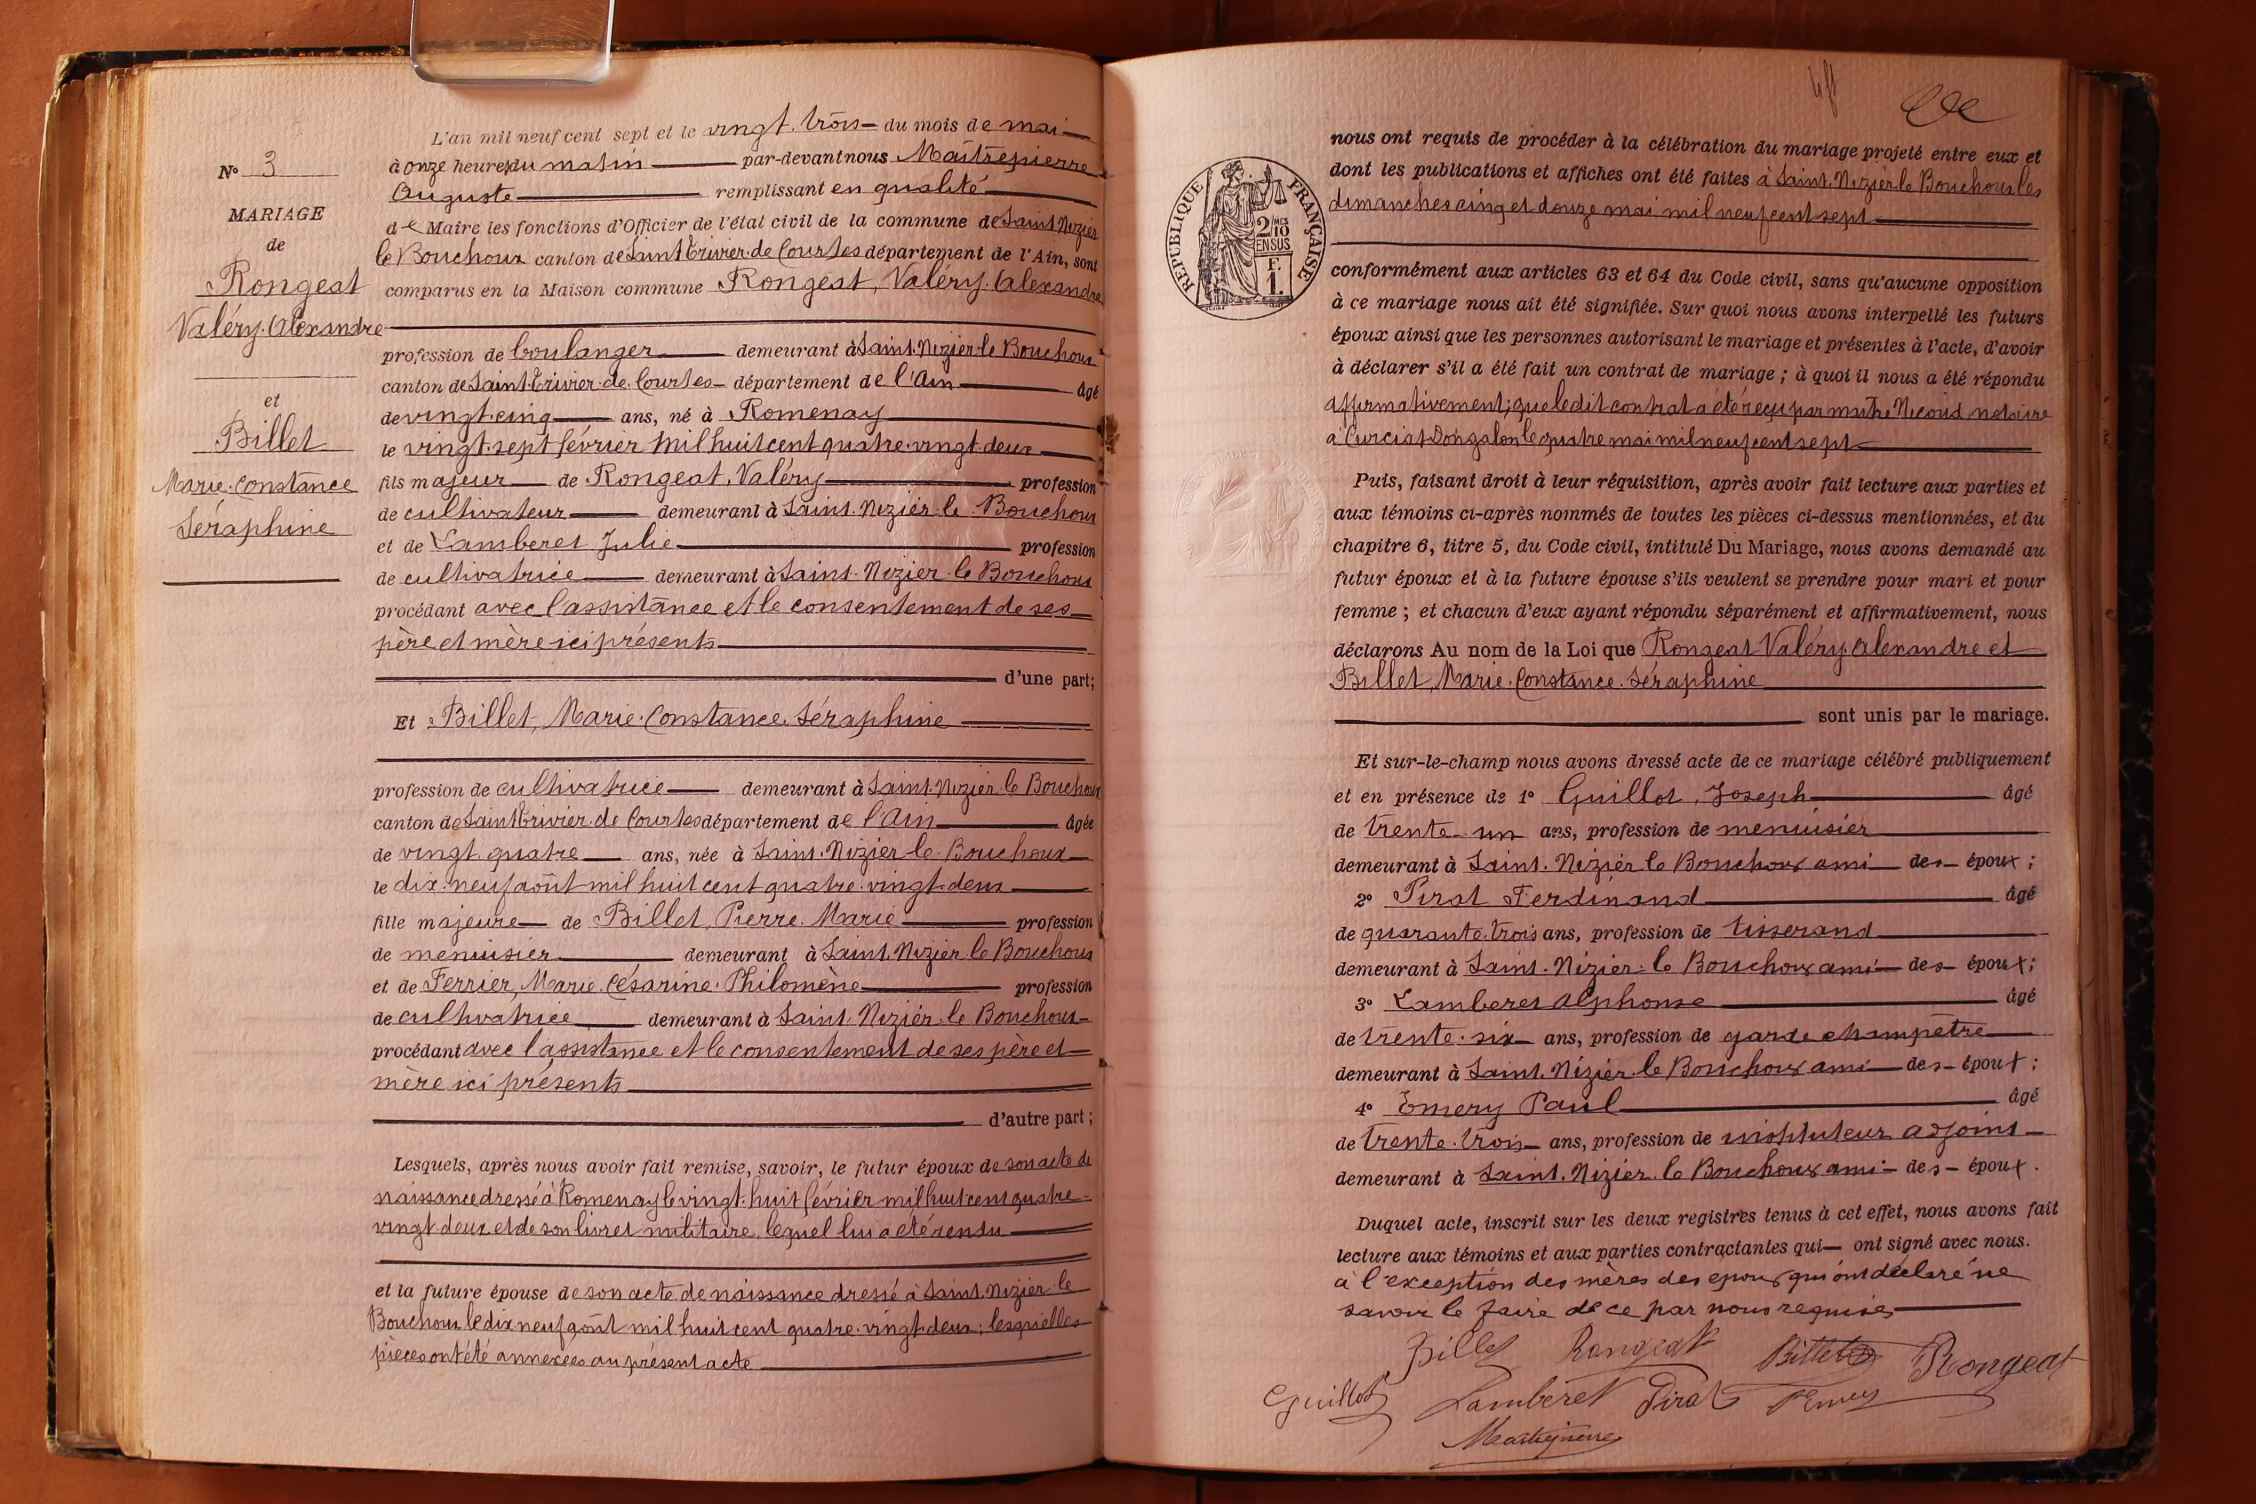 N° 3
MARIAGE
de
Rongeat
Valéry. Alexandre
et
Billet
Marie. Constance
Séraphine
L'an mil neuf cent sept et le vingt. trois du mois de mai
à onze heures du matin par-devant nous Maîtrepierre
Auguste remplissant en qualité
de Maire les fonctions d'Officier de l'état civil de la commune de Saint. Nizier
le Bouchoux canton de Saint Trivier. de Courtes département de l'Ain, sont
comparus en la Maison commune Rongeat, Valéry. Alexandre
profession de boulanger demeurant à Saint. Nizier. le Bouchoux
canton de Saint. Trivier. de. Courtes département de l'Ain âgé
de vingt. cinq ans, né à Romenay
le vingt. sept février mil huit cent quatre. vingt. deux
fils majeur de Rongeat, Valéry profession
de cultivateur demeurant à Saint. Nizier. le. Bouchoux
et de Lamberet Julie profession
de cultivatrice demeurant à Saint. Nizier. le Bouchoux
procédant avec l'assistance et le consentement de ses
père et mère ici présents
d'une part;
Et Billet, Marie. Constance. Séraphine
profession de cultivatrice demeurant à Saint. Nizier. le Bouchoux
canton de Saint Trivier. de Courtes département de l'Ain âgée
de vingt quatre ans, née à Saint. Nizier. le. Bouchoux
le dix. neuf août mil huit cent quatre. vingt. deux
fille majeure de Billet, Pierre. Marie profession
de menuisier demeurant à Saint. Nizier. le Bouchoux
et de Ferrier, Marie. Césarine. Philomène profession
de cultivatrice demeurant à Saint. Nizier. le Bouchoux
procédant avec l'assistance et le consentement de ses père et
mère ici présents
d'autre part;
Lesquels, après nous avoir fait remise, savoir, le futur époux de son acte de
naissance dressé à Romenay le vingt. huit février mil huit cent quatre
vingt. deux et de son livret militaire, lequel lui a été rendu
et la future épouse de son acte de naissance dressé à Saint. Nizier. le
Bouchoux le dix neuf août mil huit cent quatre. vingt. deux; lesquelles
pièces ont été annexées au présent acte
RÉPUBLIQUE FRANÇAISE
2/10
EN SUS
F.
1.
nous ont requis de procéder à la célébration du mariage projeté entre eux et
dont les publications et affiches ont été faites à Saint. Nizier le Bouchoux les
dimanches cinq et douze mai mil neuf cent sept
conformément aux articles 63 et 64 du Code civil, sans qu'aucune opposition
à ce mariage nous ait été signifiée. Sur quoi nous avons interpellé les futurs
époux ainsi que les personnes autorisant le mariage et présentes à l'acte, d'avoir
à déclarer s'il a été fait un contrat de mariage; à quoi il nous a été répondu
affirmativement; que ledit contrat a été reçu par maître notaire
à Curciat Dongalon le quatre mai mil neuf cent sept
Puis, faisant droit à leur réquisition, après avoir fait lecture aux parties et
aux témoins ci-après nommés de toutes les pièces ci-dessus mentionnées, et du
chapitre 6, titre 5, du Code civil, intitulé Du Mariage, nous avons demandé au
futur époux et à la future épouse s'ils veulent se prendre pour mari et pour
femme; et chacun d'eux ayant répondu séparément et affirmativement, nous
déclarons Au nom de la Loi que Rongeat Valéry. Alexandre et
Billet, Marie. Constance. Séraphine
sont unis par le mariage.
Et sur-le-champ nous avons dressé acte de ce mariage célébré publiquement
et en présence de 1° Guillot, Joseph âgé
de trente. un ans, profession de menuisier
demeurant à Saint. Nizier le Bouchoux ami des époux;
2° Pirat Ferdinand âgé
de quarante. trois ans, profession de tisserand
demeurant à Saint. Nizier. le Bouchoux ami des époux;
3° Lamberet Alphonse âgé
de trente. six ans, profession de garde champêtre
demeurant à Saint. Nizier. le Bouchoux ami des époux;
4° Emery Paul âgé
de trente. trois ans, profession de instituteur adjoint
demeurant à Saint. Nizier. le Bouchoux ami des époux.
Duquel acte, inscrit sur les deux registres tenus à cet effet, nous avons fait
lecture aux témoins et aux parties contractantes qui ont signé avec nous.
à l'exception des mères des époux qui ont déclaré ne
savoir le faire de ce par nous requises
Billet Rongeat Billet Rongeat
Guillot Lamberet Pirat Emery
Maitrepierre